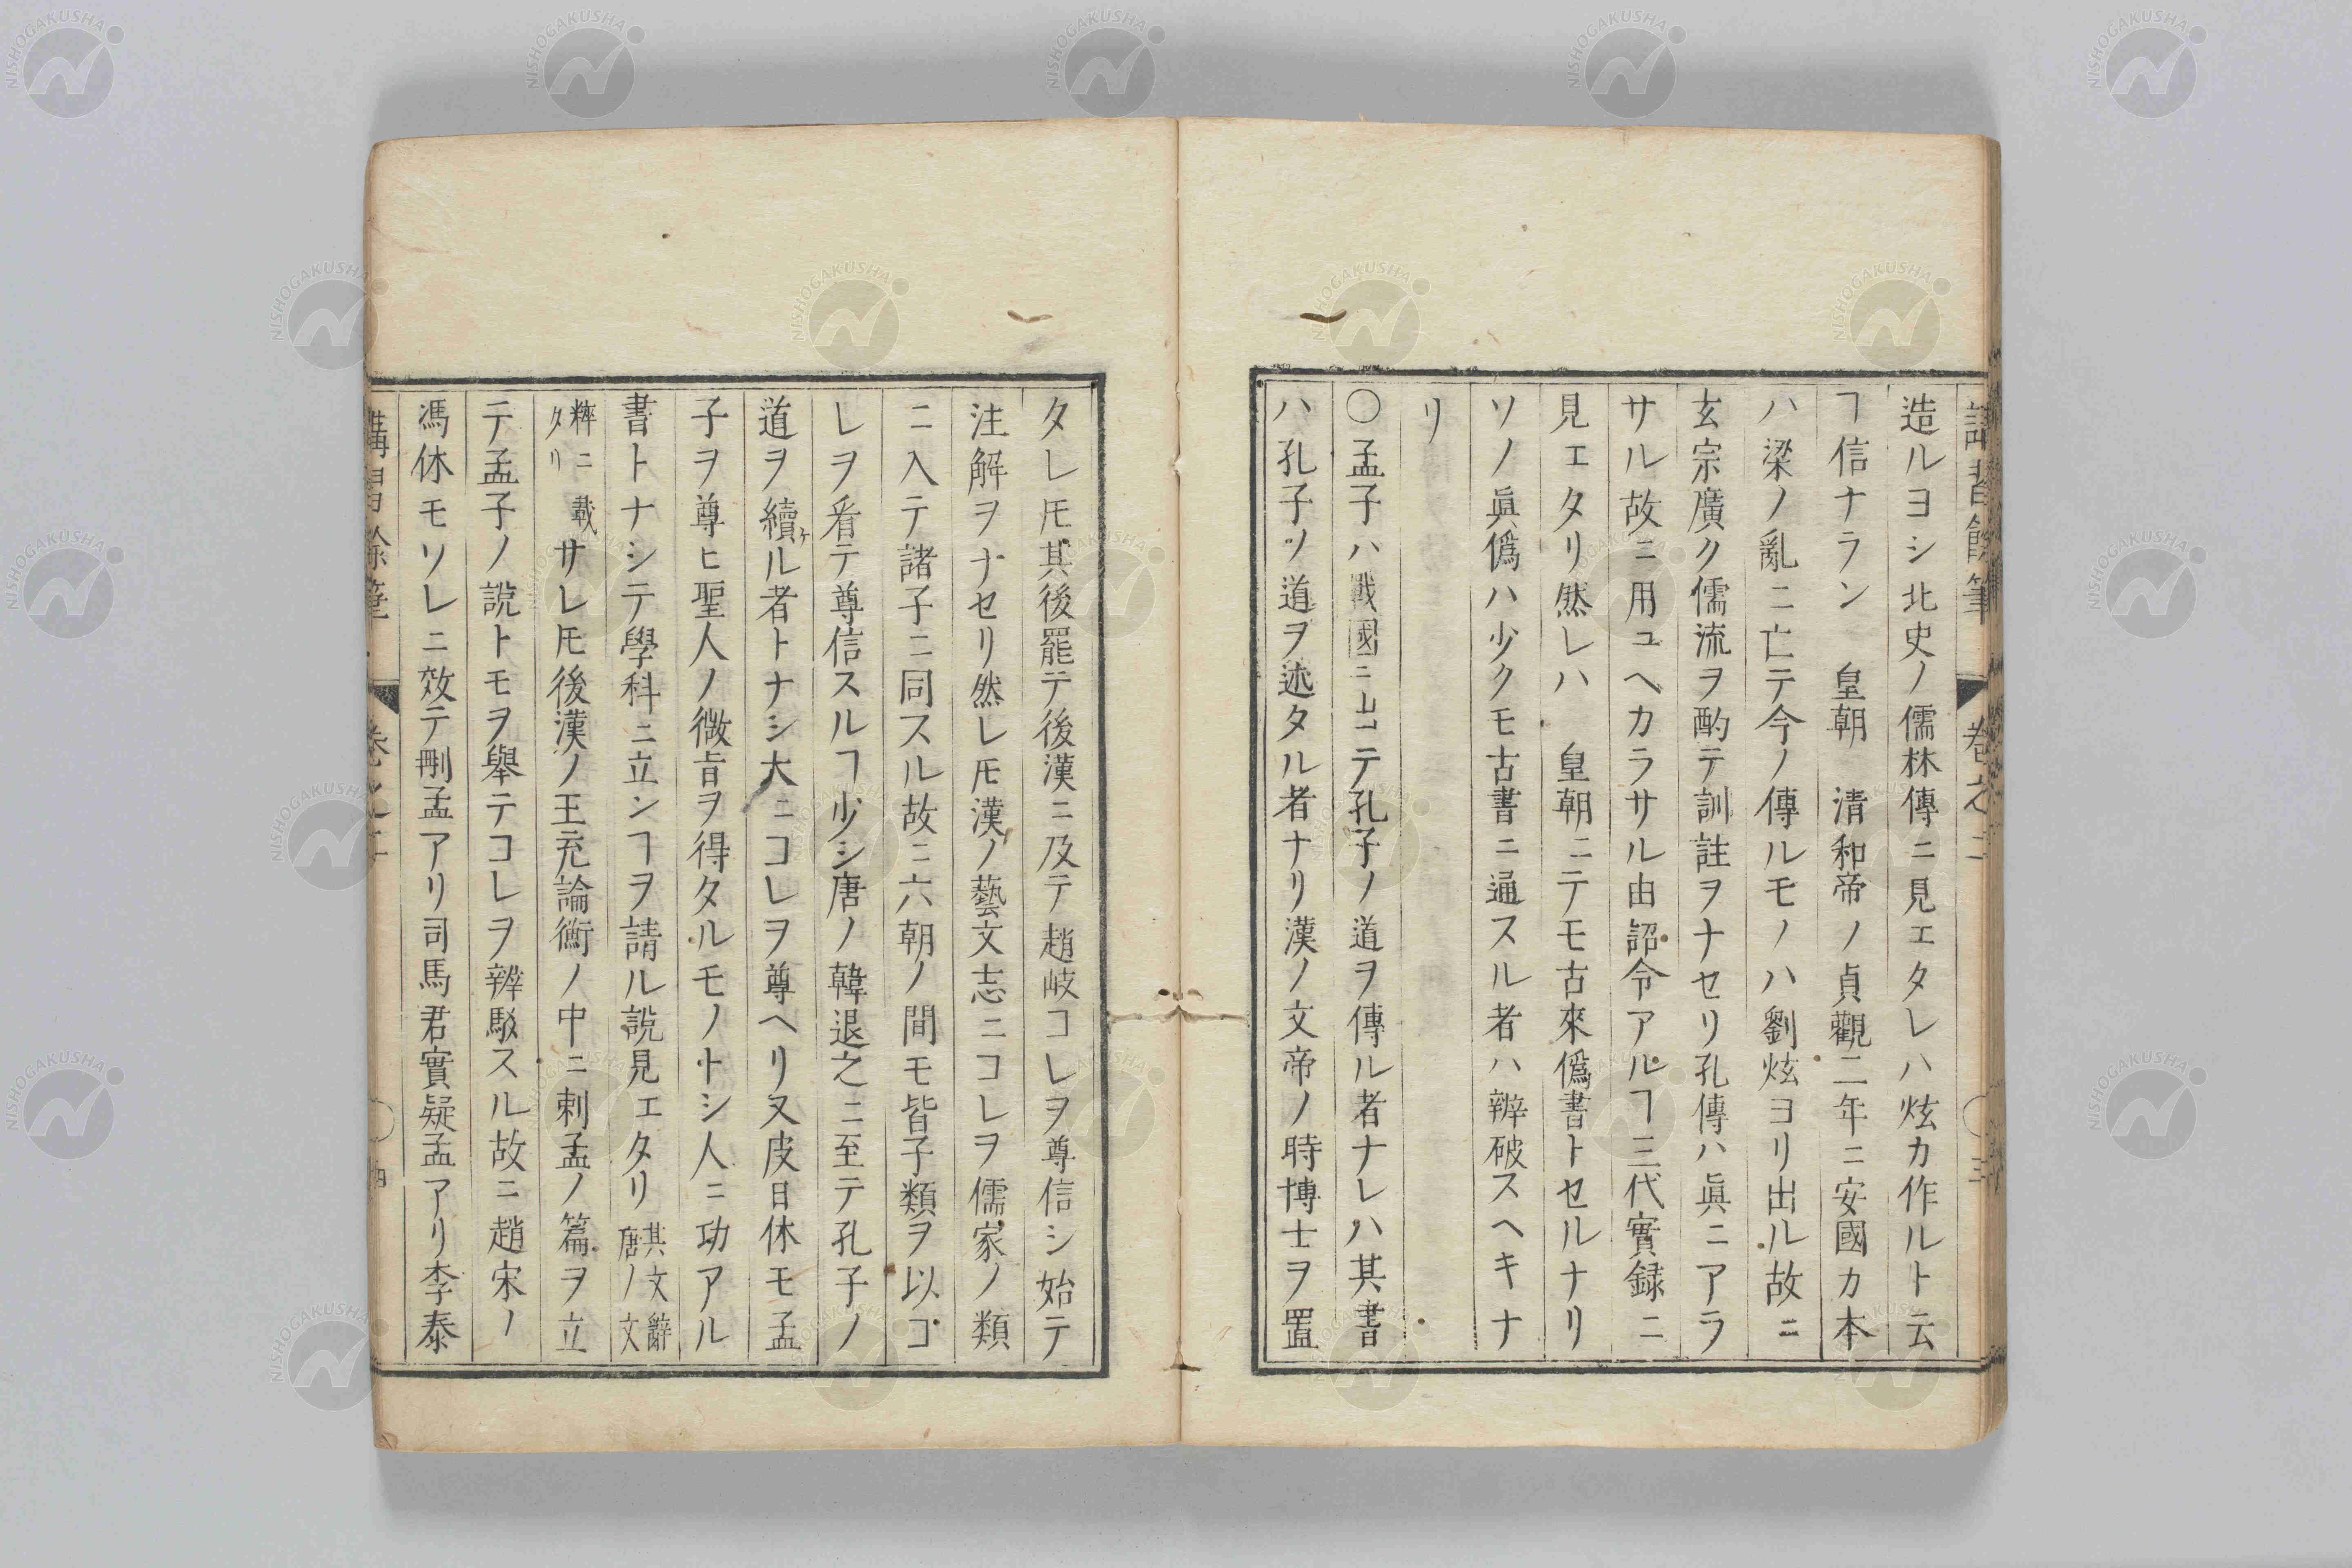 造ルヨシ北史ノ儒林傳ニ見エタレハ炫カ作ルト云
ヿ信ナラン　皇朝　清和帝ノ貞觀二年ニ安國カ本
ハ梁ノ亂ニ亡テ今ノ傳ルモノハ劉炫ヨリ出ル故ニ
玄宗廣ク儒流ヲ酌テ訓註ヲナセリ孔傳ハ眞ニアラ
サル故ニ用ユヘカラサル由詔令アルヿ三代實録ニ
見エタリ然レハ　皇朝ニテモ古來僞書トセルナリ
ソノ眞僞ハ少クモ古書ニ通スル者ハ辨破スヘキナ
リ
〇孟子ハ戰國ニ出テ孔子ノ道ヲ傳ル者ナレハ其書
ハ孔子ノ道ヲ述タル者ナリ漢ノ文帝ノ時博士ヲ置
タレ𪜈其後罷テ後漢ニ及テ趙岐コレヲ尊信シ始テ
注解ヲナセリ然レ𪜈漢ノ藝文志ニコレヲ儒家ノ類
ニ入テ諸子ニ同スル故ニ六朝ノ間モ皆子類ヲ以コ
レヲ看テ尊信スルヿ少シ唐ノ韓退之ニ至テ孔子ノ
道ヲ續ケル者トナシ大ニコレヲ尊ヘリ又皮日休モ孟
子ヲ尊ヒ聖人ノ微旨ヲ得タルモノトシ人ニ功アル
書トナシテ學科ニ立ンヿヲ請ル說見エタリ其文辭唐ノ文
粹ニ載タリサレ𪜈後漢ノ王充論衡ノ中ニ刺孟ノ篇ヲ立
テ孟子ノ說トモヲ舉テコレヲ辨駁スル故ニ趙宋ノ
馮休モソレニ效テ刪孟アリ司馬君實疑孟アリ李泰
講習餘筆
卷之二
〇三
NISHOGAKUSHA